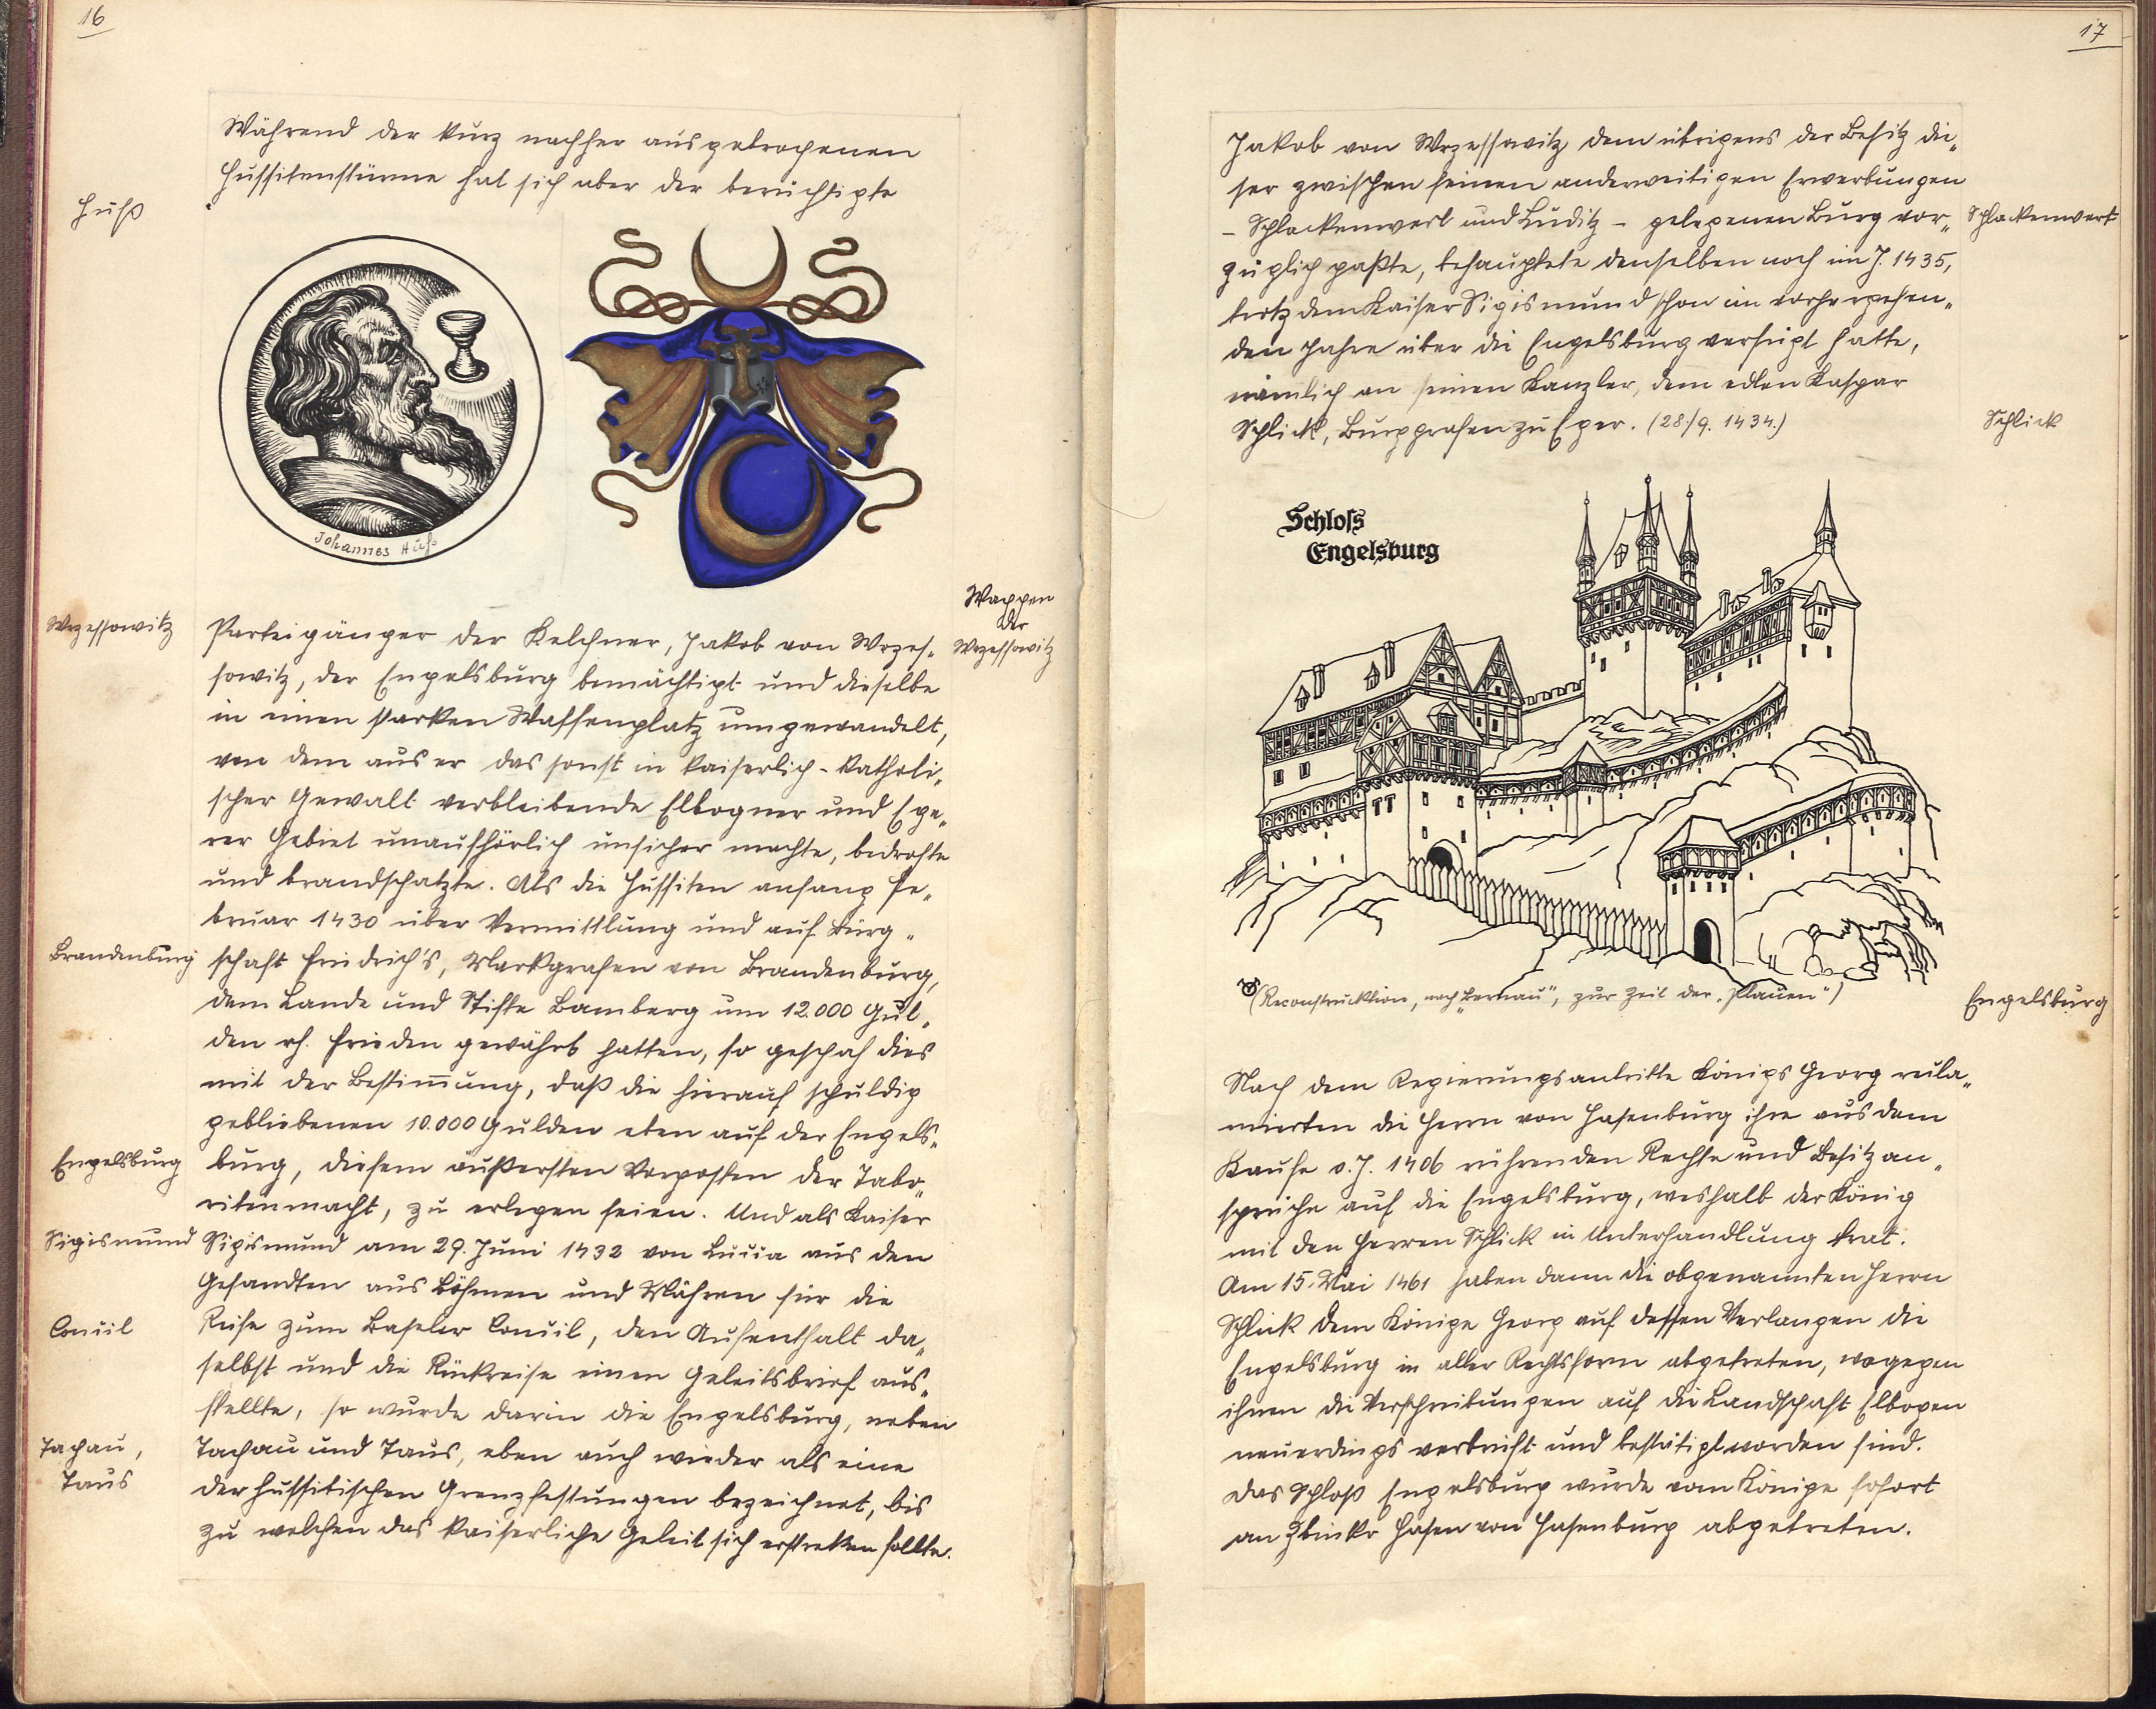 16
Während der kurz nachher ausgebrochenen
Hussitenstürme hat sich aber der berüchtigte
Huß
Johannes Huß
Wappen
der
Wrzessowitz
Wrzessowitz
Parteigänger der Kelchner, Jakob von Wrzes„
sowitz, der Engelsburg bemächtigt und dieselbe
in einen starken Waffenplatz umgewandelt,
von dem aus er das sonst in kaiserlich-katholi„
scher Gewalt verbleibende Elbogner und Ege„
rer Gebiet unaufhörlich unsicher machte, bedrohte
und brandschatzte. Als die Hussiten anfang Fe„
bruar 1430 über Vermittlung und auf Bürg„
Brandenburg
schaft Friedrich's, Markgrafen von Brandenburg,
dem Lande und Stifte Bamberg um 12.000 Gul„
den rh. Frieden gewährt hatten, so geschah dies
mit der Bestim̄ung, daß die hierauf schuldig
gebliebenen 10.000 Gulden eben auf der Engels„
Engelsburg
burg, diesem äußersten Vorposten der Tabo„
ritenmacht, zu erlegen seien. Und als Kaiser
Sigismund
Sigismund am 29. Juni 1432 von Lucca aus den
Gesandten aus Böhmen und Mähren für die
Concil
Reise zum Baseler Concil, den Aufenthalt da„
selbst und die Rückreise einen Geleitsbrief aus„
stellte, so wurde darin die Engelsburg, neben
Tachau,
Taus
Tachau und Taus, eben auch wieder als eine
der hussitischen Grenzfestungen bezeichnet, bis
zu welchen das kaiserliche Geleit sich erstrecken sollte.
17
Jakob von Wrzessowitz, dem übrigens der Besitz die„
ser zwischen seinen anderweitigen Erwerbungen
– Schlackenwert und Luditz – gelegenen Burg vor„
Schlackenwert
züglich paßte, behauptete denselben noch im J. 1435,
trotzdem Kaiser Sigismund schon im vorhergehen„
den Jahre über die Engelsburg verfügt hatte,
nämlich an seinen Kanzler, dem edlen Kaspar
Schlick, Burggrafen zu Eger. (28./9. 1434.)
Schlick
Schloss
Engelsburg
(Reconstrucktion, nach „Bernau“, zur Zeit der „Plauen“)
Engelsburg
Nach dem Regierungsantritte Königs Georg recla„
mierten die Herrn von Hasenburg ihre aus dem
Kaufe v. J. 1406 rührenden Rechte und Besitzan„
sprüche auf die Engelsburg, weshalb der König
mit den Herren Schlick in Unterhandlung trat.
Am 15. Mai 1461 haben dann die obgenannten Herrn
Schlick dem Könige Georg auf dessen Verlangen die
Engelsburg in aller Rechtsform abgetreten, wogegen
ihnen die Verschreibungen auf die Landschaft Elbogen
neuerdings verbrieft und bestätigt worden sind.
Das Schloß Engelsburg wurde vom Könige sofort
an Zbinko Hasen von Hasenburg abgetreten.